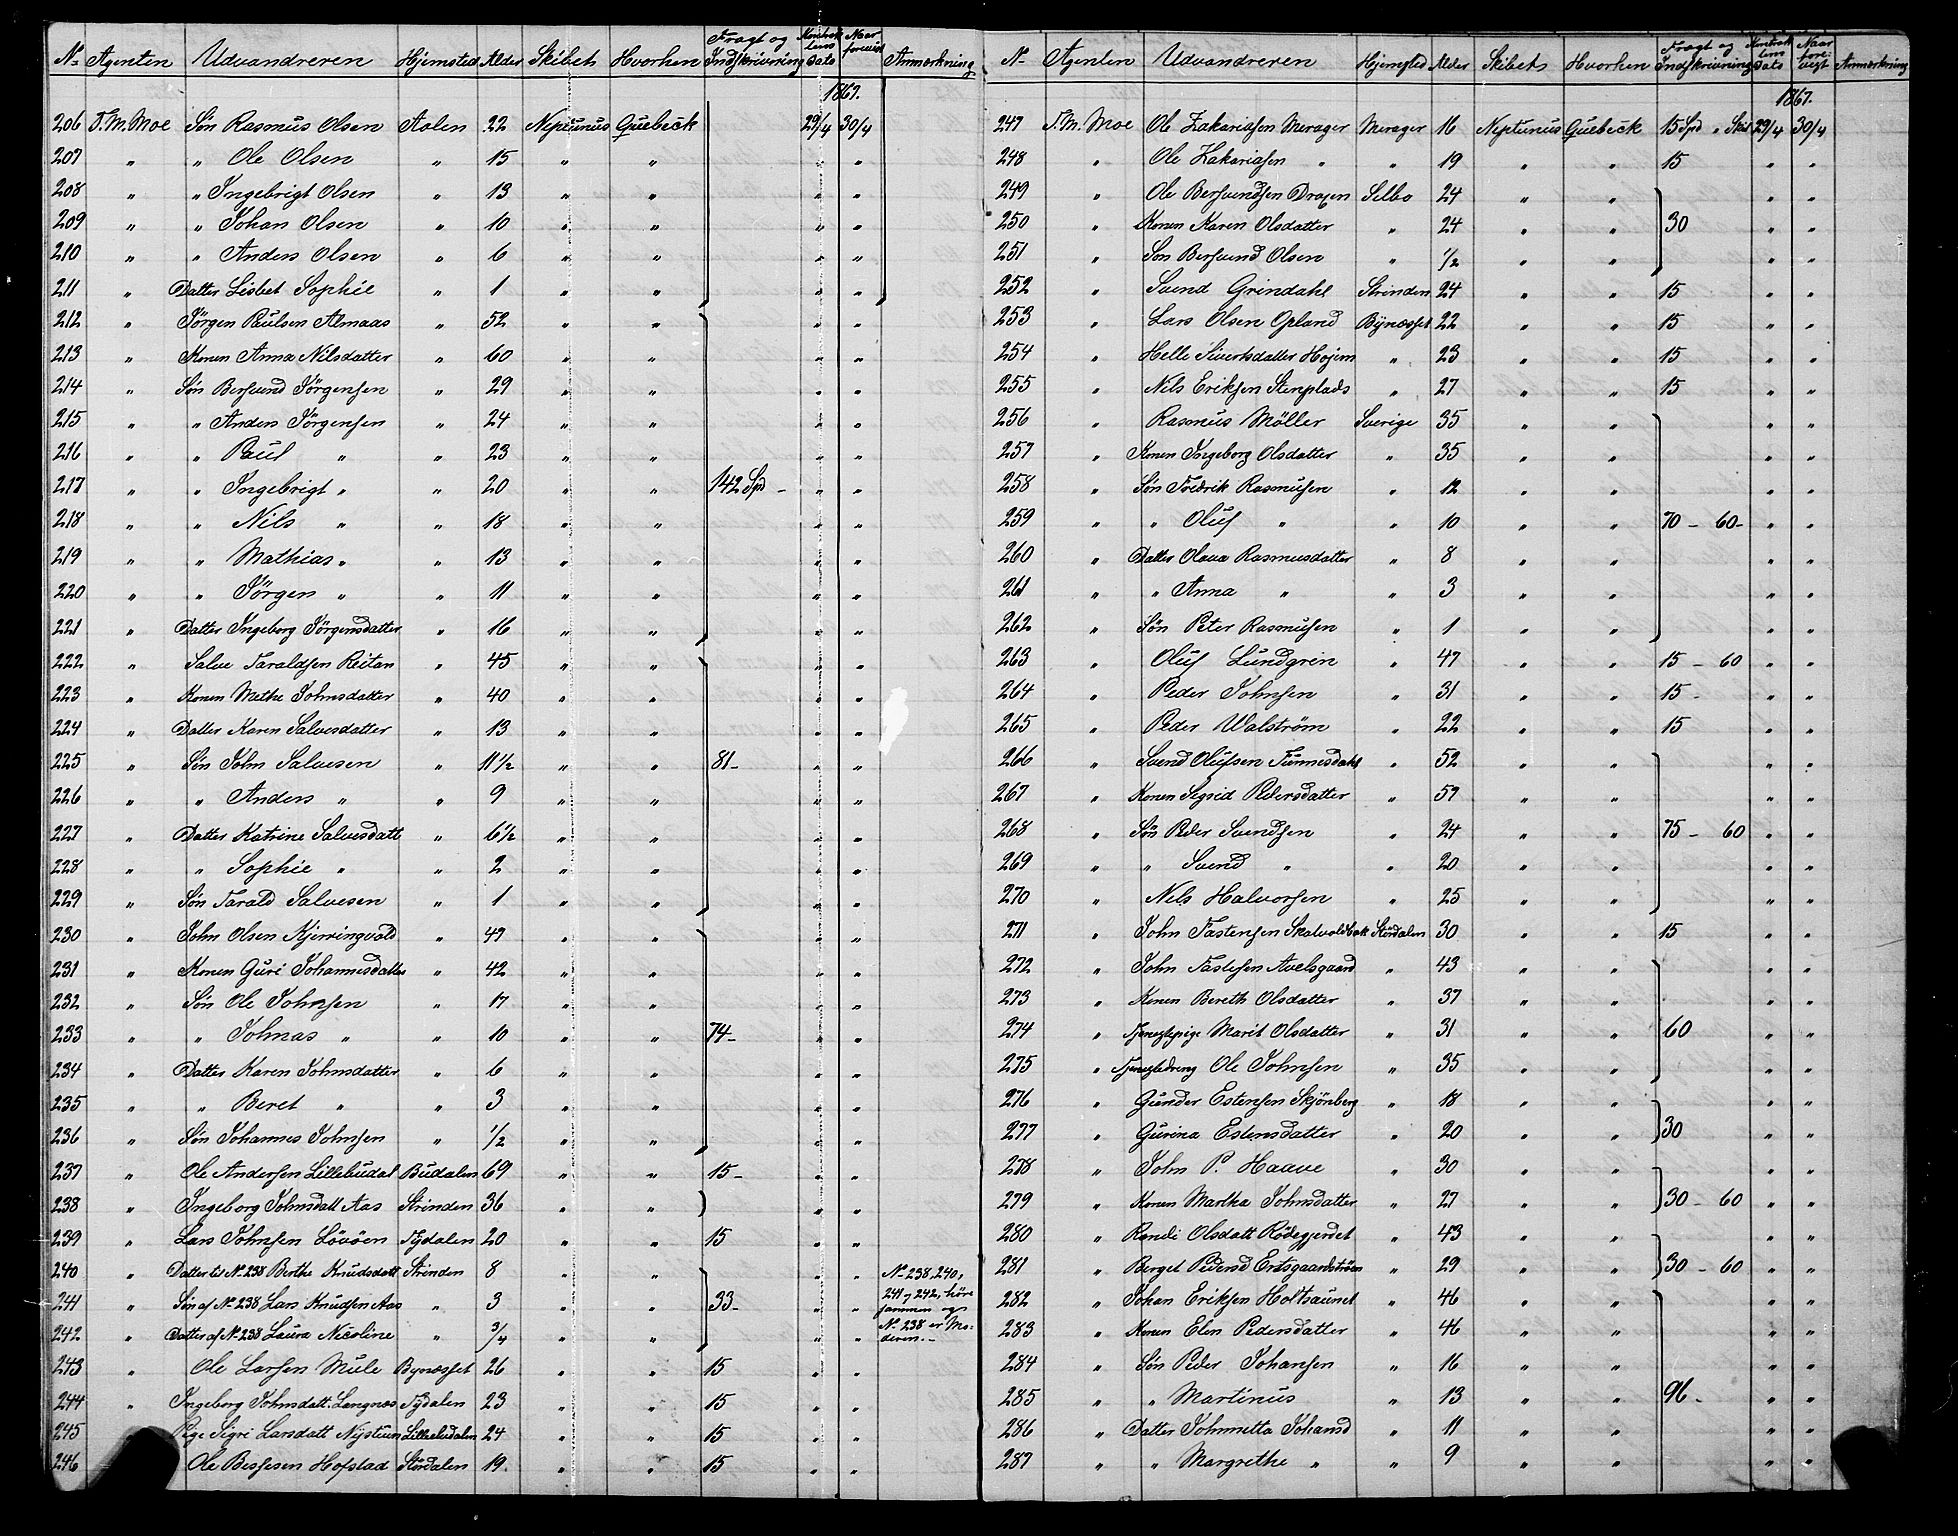 No Agenten Udvandreren Hjemsted Alder Skibet Hvorhen Fragt og Indskrivning Kontraktens Dato Naar foreviist Anmerkning
1867.
206 T. M. Moe Søn Rasmus Olsen Aalen 22 Neptunus Quebeck 29/4 30/4
207 " " Ole Olsen " 15 " " " "
208 " " Ingebrigt Olsen " 13 " " " "
209 " " Johan Olsen " 10 " " " "
210 " " Anders Olsen " 6 " " " "
211 " Datter Lisbet Sophie " 1 " " " "
212 " Jörgen Paulsen Almaas " 52 " " " "
213 " Konen Anna Nilsdatter " 60 " " " "
214 " Søn Bersvend Jörgensen " 29 " " " "
215 " " Anders Jörgensen " 24 " " " "
216 " " Paul " " 23 " " " "
217 " " Ingebrigt " " 20 " " 142 Spd - " "
218 " " Nils " " 18 " " " "
219 " " Mathias " " 13 " " " "
220 " " Jörgen " " 11 " " " "
221 " Datter Ingeborg Jörgensdatter " 16 " " " "
222 " Salve Taraldsen Reitan " 45 " " " "
223 " Konen Methe Johnsdatter " 40 " " " "
224 " Datter Karen Salvesdatter " 13 " " " "
225 " Søn John Salvesen " 11 1/2 " " 81- " "
226 " " Anders " " 9 " " " "
227 " Datter Katrine Salvesdatt " 6 1/2 " " " "
228 " " Sophie " " 2 " " " "
229 " Søn Tarald Salvesen " 1 " " " "
230 " John Olsen Kjerringvold " 49 " " " "
231 " Konen Guri Johannesdatter " 42 " " " "
232 " Søn Ole Johnsen " 17 " " " "
233 " " Johnas " " 10 " " 74- " "
234 " Datter Karen Johnsdatter " 6 " " " "
235 " " Beret " " 3 " " " "
236 " Søn Johannes Johnsen " 1/2 " " " "
237 " Ole Andersen Lillebudal Budalen 69 " " 15- " "
238 " Ingeborg Johnsdatt Aas Strinden 36 " " " "
239 " Lars Johnsen Lövöen Tydalen 20 " " 15 " "
240 " Datter til No 238 Berthe Knudsdatt Strinden 8 " " " " No 238, 240,
241 " Søn af No 238 Lars Knudsen Aas " 3 " " 33- " " 241 og 242, höre sammen og
242 " Datter af No 238 Laura Nicoline " 3/4 " " " " No 238 er Moderen.-
243 " Ole Larsen Mule Bynæsset 26 " " 15 " "
244 " Ingeborg Johnsdatt. Langnes Tydalen 23 " " 15 " "
245 " Pige Sigri Larsdatt Nystuen Lillebudalen 24 " " 15 " "
246 Ole Bessesen Hofstad Stördalen 19 " " 15 " "
No Agenten Udvandreren Hjemsted Alder Skibets Hvorhen Fragt og Indskrivning Kontraktens Dato Naar forevist Anmerkning
1867.
247 T. M. Moe Ole Zakariasen Merager Merager 16 Neptunus Quebeck 15 Spd " Skil 29/4 30/4
248 " Ole Zakariasen " " 19 " " 15 " "
249 " Ole Bersvendsen Draxen Selbo 24 " " " "
250 " Konen Karen Olsdatter " 24 " " 30 " "
251 " Søn Bersvend Olsen " 1/2 " " " "
252 " Svend Grindahl Strinden 24 " " 15 " "
253 " Lars Olsen Opland Bynæsset 22 " " 15 " "
254 " Helle Sivertsdatter Hojem " 23 " " 15 " "
255 " Nils Eriksen Stenplads " 27 " " 15 " "
256 " Rasmus Möller Sverige 35 " " " "
257 " Konen Ingeborg Olsdatter " 35 " " " "
258 " Søn Fredrik Rasmusen " 12 " " " "
259 " " Oluf " " 10 " " 70 - 60- " "
260 " Datter Olava Rasmusdatter " 8 " " " "
261 " " Anna " " 3 " " " "
262 " Søn Peter Rasmusen " 1 " " " "
263 " Oluf Lundgren " 47 " " 15 - 60 " "
264 " Peder Johnsen " 31 " " 15 - " "
265 " Peder Walström " 22 " " 15 " "
266 " Svend Olufsen Tunnesdahl " 52 " " " "
267 " Konen Sigrid Pedersdatter " 57 " " " "
268 " Søn Peder Svendsen " 24 " " 75 - 60 " "
269 " " Svend " " 20 " " " "
270 " Nils Halvorsen " 25 " " " "
271 " John Fastensen Skalvoldbek Stördalen 30 " " 15 " "
272 " John Fastesen Avelsgaard " 43 " " " "
273 " Konen Bereth Olsdatter " 37 " " " "
274 " Tjenestepige Marit Olsdatter " 31 " " 60 " "
275 " Tjenestedreng Ole Johnsen " 35 " " " "
276 " Gunder Estensen Skjönberg " 18 " " " "
277 " Gurina Estensdatter " 20 " " 30 " "
278 " John P. Haave " 30 " " " "
279 " Konen Martha Johnsdatter " 27 " " 30 - 60 " "
280 " Randi Olsdatt Rödegjerdet " 43 " " " "
281 " Berget Pedersd Ertsgaardströen " 29 " " 30 - 60 " "
282 " Johan Eriksen Holtsaunet " 46 " " " "
283 " Konen Elen Pedersdatter " 46 " " " "
284 " Søn Peder Johansen " 16 " " " "
285 " " Martinus " 13 " " 96- " "
286 " Datter Johnnetta Johansd " 11 " " " "
287 " " Margrethe " " 9 " " " "